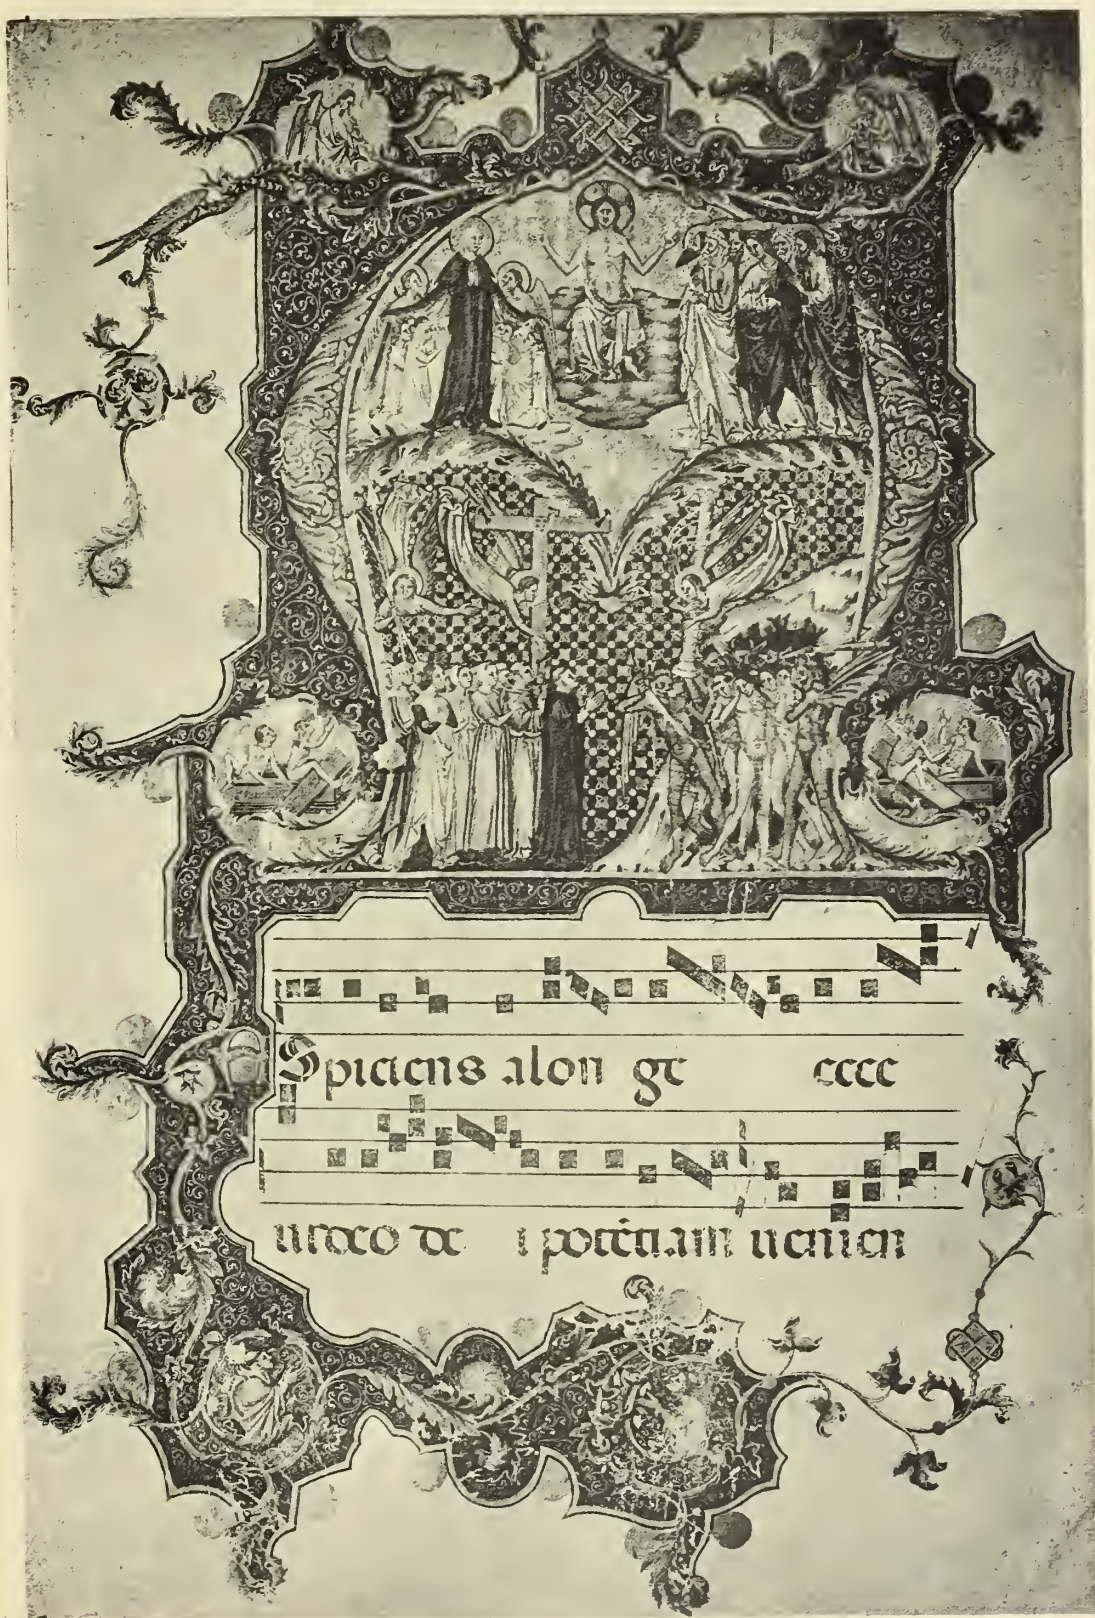 Spiciens alon ge eeee
u ecco de i potētiam uenien